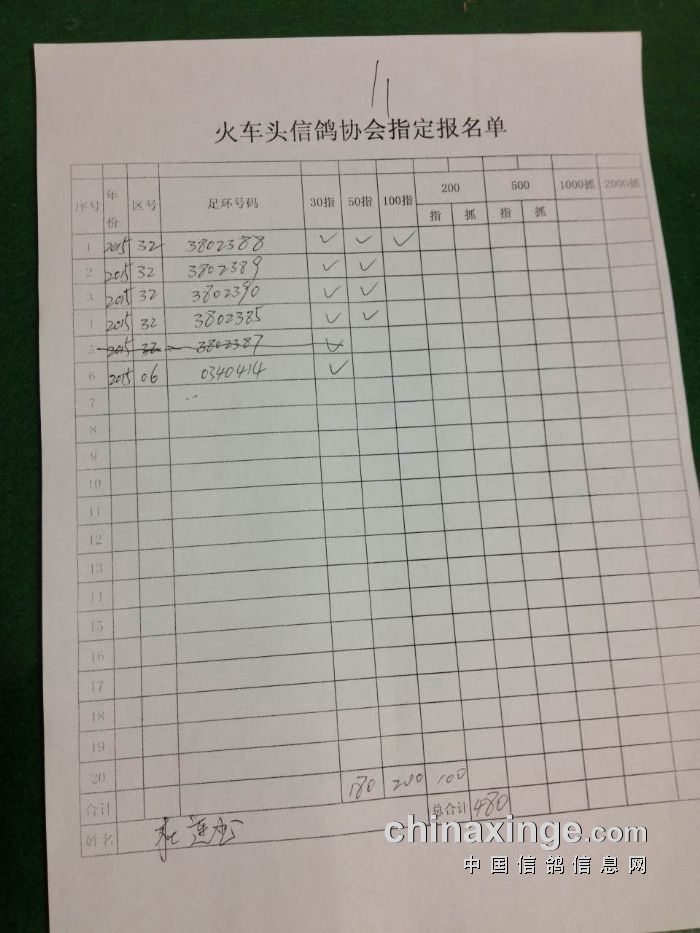 11
火车头信鸽协会指定报名单
序号 年份 区号 足环号码 30指 50指 100指 200 500 1000抓 2000抓
指 抓 指 抓
1 2015 32 3802388 ✓ ✓ ✓
2 2015 32 3802389 ✓ ✓
3 2015 32 3802390 ✓ ✓
4 2015 32 3802385 ✓ ✓
5 2015 32 3802387 ✓
6 2015 06 0340414 ✓
7
8
9
10
11
12
13
14
15
16
17
18
19
20 180 200 100
合计 总合计 480
姓名
chinaxinge.com
中国信鸽信息网